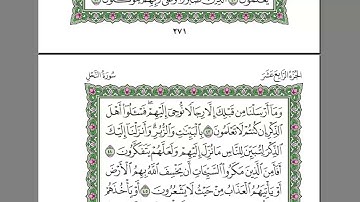 يَعْلَمُونَ ٤١ الَّذِينَ صَبَرُوا وَعَلَىٰ رَبِّهِمْ يَتَوَكَّلُونَ ٤٢
٢٧١
الجُزْءُ الرَّابِعَ عَشَرَ
سُورَةُ النَّحْلِ
وَمَا أَرْسَلْنَا مِن قَبْلِكَ إِلَّا رِجَالًا نُّوحِي إِلَيْهِمْ فَسْـَٔلُوا أَهْلَ
الذِّكْرِ إِن كُنتُمْ لَا تَعْلَمُونَ ٤٣ بِالْبَيِّنَٰتِ وَالزُّبُرِ وَأَنزَلْنَا إِلَيْكَ
الذِّكْرَ لِتُبَيِّنَ لِلنَّاسِ مَا نُزِّلَ إِلَيْهِمْ وَلَعَلَّهُمْ يَتَفَكَّرُونَ ٤٤
أَفَأَمِنَ الَّذِينَ مَكَرُوا السَّيِّـَٔاتِ أَن يَخْسِفَ اللَّهُ بِهِمُ الْأَرْضَ
أَوْ يَأْتِيَهُمُ الْعَذَابُ مِنْ حَيْثُ لَا يَشْعُرُونَ ٤٥ أَوْ يَأْخُذَهُمْ